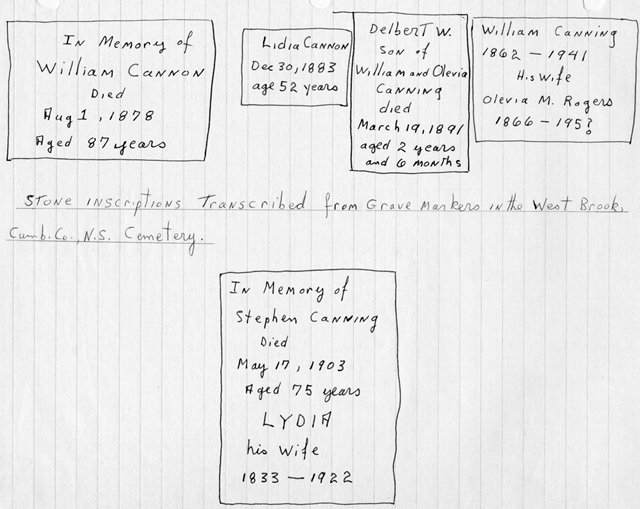 In Memory of
William Cannon
Died
Aug 1, 1878
Aged 87 years
Lidia Cannon
Dec 30, 1883
age 52 years
Delbert W.
Son of
William and Olevia
Canning
died
March 19, 1891
aged 2 years
and 6 months
William Canning
1862 - 1941
His Wife
Olevia M. Rogers
1866 - 195?
Stone inscriptions Transcribed from Grave Markers in the West Brook,
Cumb. Co., N.S. Cemetery.
In Memory of
Stephen Canning
Died
May 17, 1903
Aged 75 years
LYDIA
his Wife
1833 - 1922